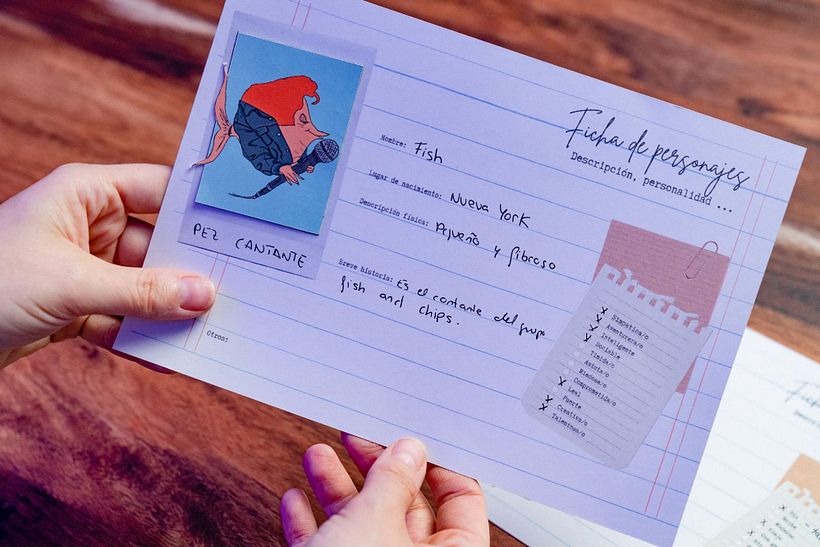 Ficha de personajes
Descripción, personalidad ...
Nombre: Fish
Lugar de nacimiento: Nueva York
Descripción física: Pequeño y fibroso
Breve historia: Es el cantante del grupo
fish and chips.
Otros:
PEZ CANTANTE
x Simpática/o
x Aventurera/o
x Inteligente
x Sociable
Tímida/o
Astuta/o
Miedosa/o
Comprometida/o
x Leal
Fuerte
x Creativa/o
x Talentosa/o